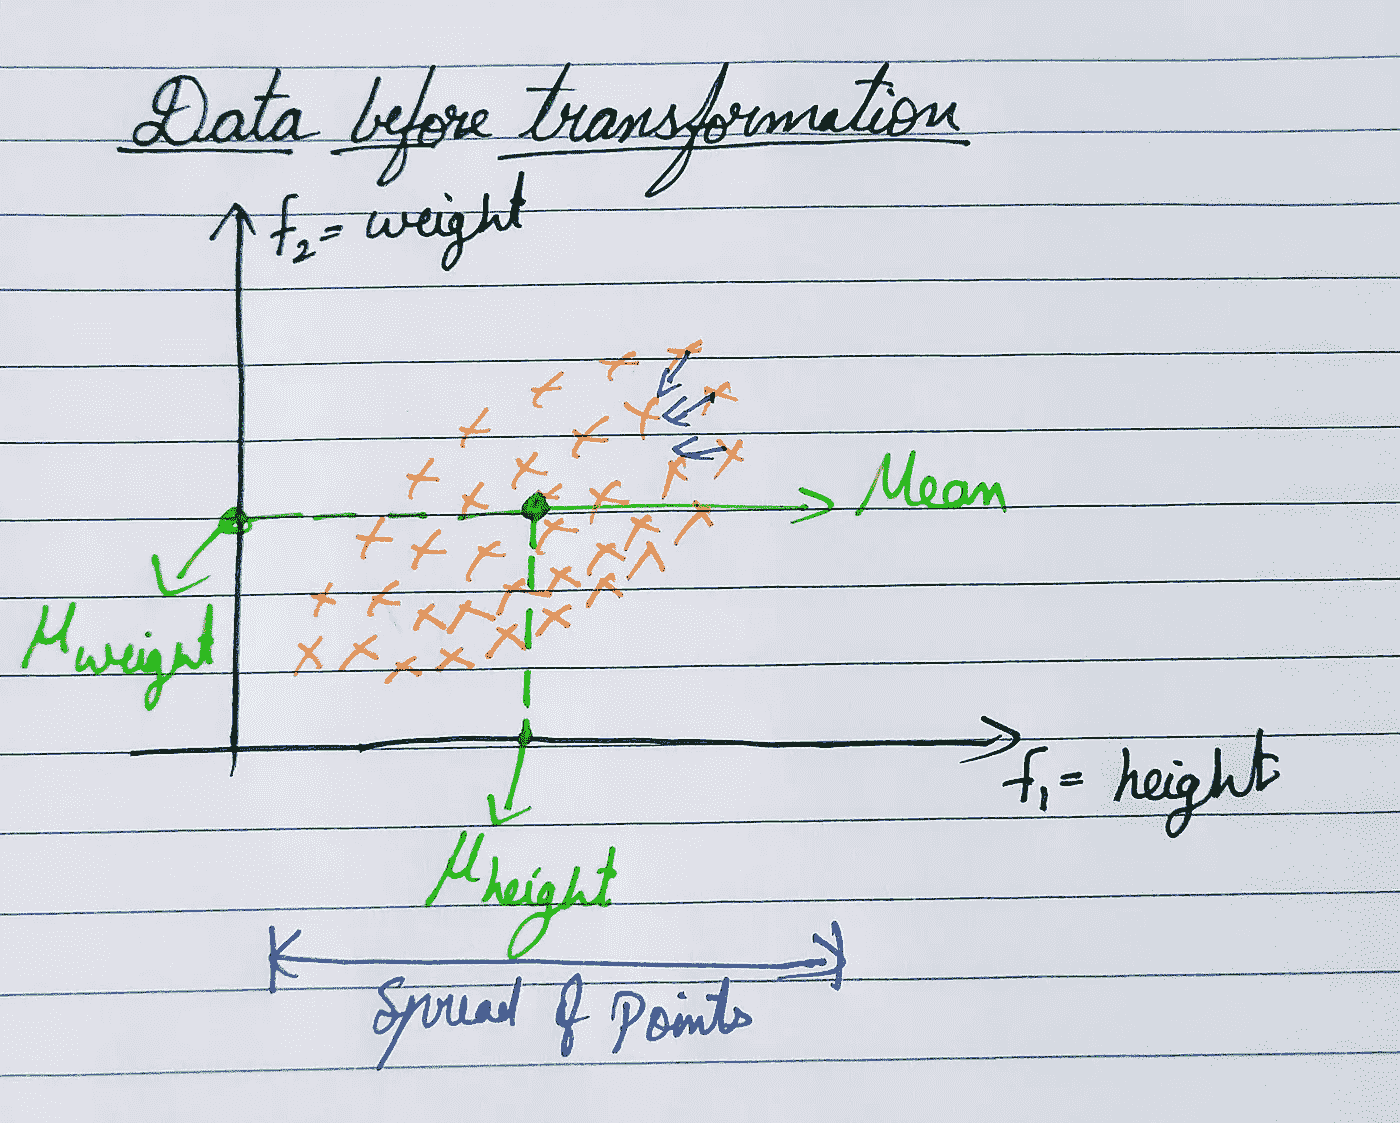 Data before transformation
f₂ = weight
Mean
μ weight
f₁ = height
μ height
Spread of Points